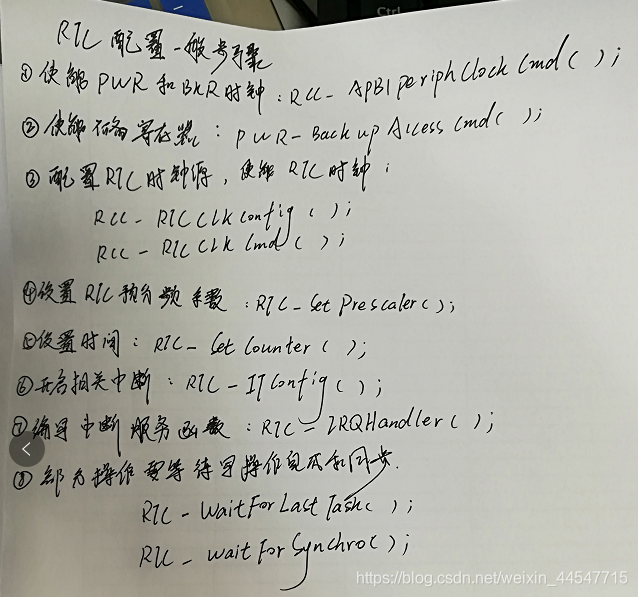 Ctrl
RTC 配置一般步骤
①使能 PWR 和 BKR时钟：RCC-APB1periphClockCmd();
②使能后备寄存器：PWR-BackupAccessCmd();
③配置RTC时钟源，使能RTC时钟：
RCC-RTCCLKConfig();
RCC-RTCCLKCmd();
④设置RTC预分频系数：RTC-SetPrescaler();
⑤设置时间：RTC-SetCounter();
⑥开启相关中断：RTC-ITConfig();
⑦编写中断服务函数：RTC-IRQHandler();
⑧部分操作要等待写操作完成和同步.
RTC-WaitForLastTask();
RTC-waitForSynchro();
https://blog.csdn.net/weixin_44547715